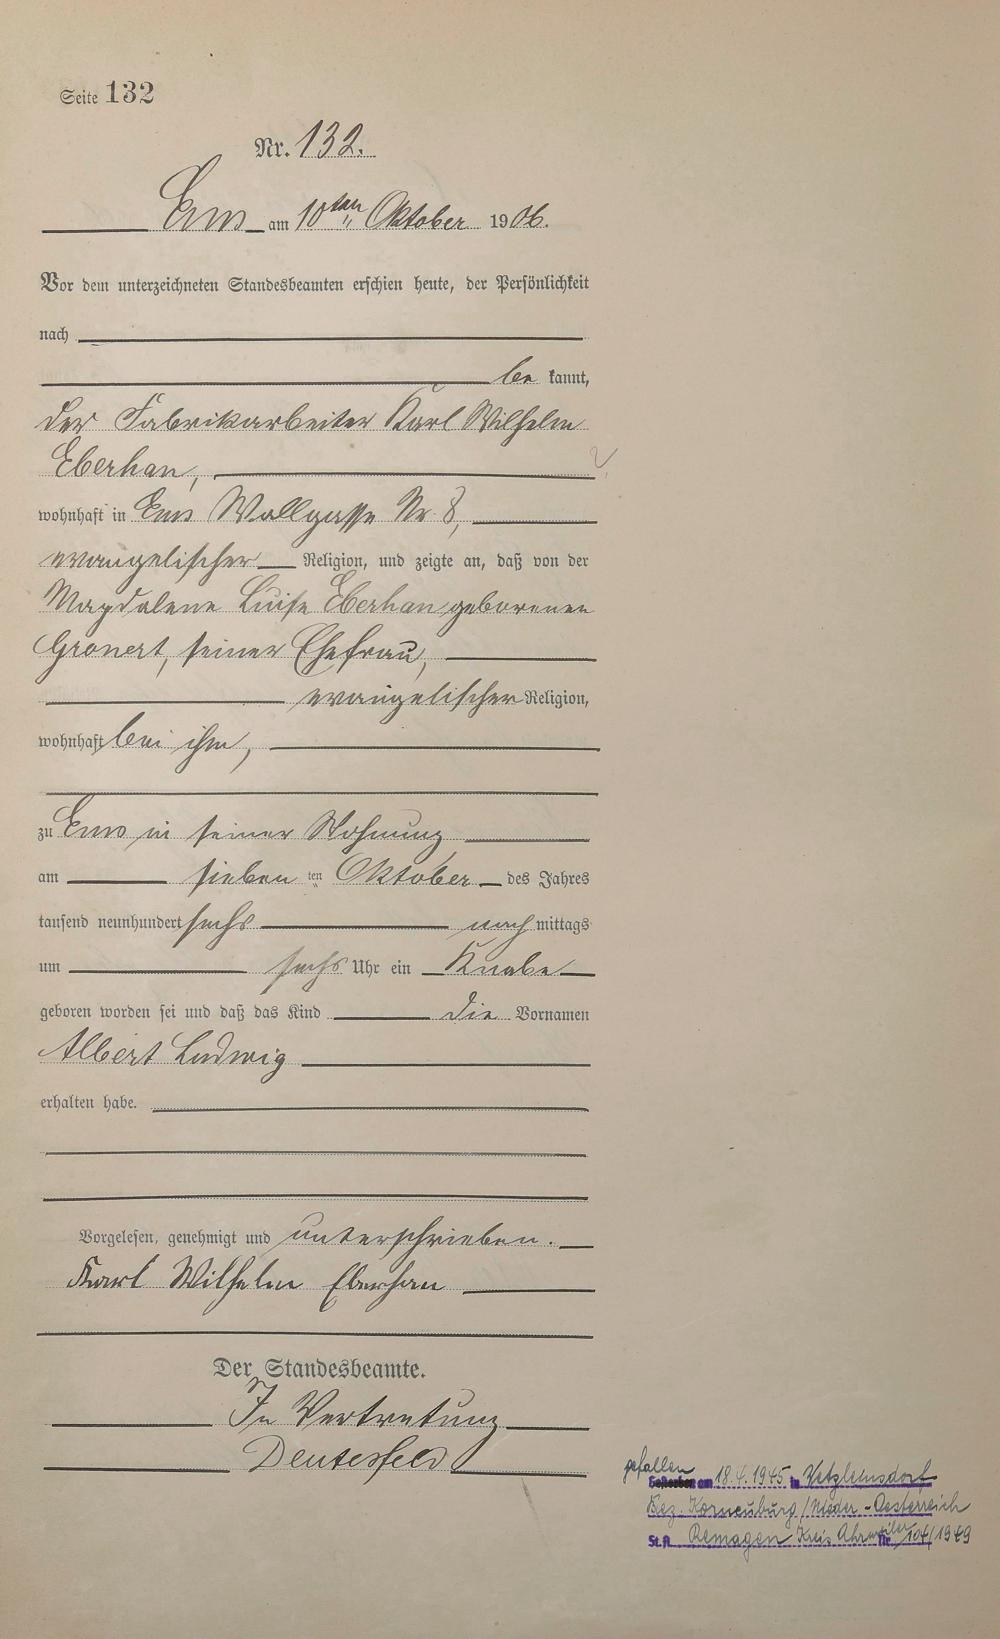 Seite 132
Nr. 132.
Ems am 10ten Oktober 1906.
Vor dem unterzeichneten Standesbeamten erschien heute, der Persönlichkeit
nach
be kannt,
der Fabrikarbeiter Karl Wilhelm
Eberhan,
wohnhaft in Ems Wallgasse Nr 8,
evangelischer Religion, und zeigte an, daß von der
Magdalene Luise Eberhan geborenen
Gronert, seiner Ehefrau,
evangelischer Religion,
wohnhaft bei ihm,
zu Ems in seiner Wohnung
am sieben ten Oktober des Jahres
tausend neunhundert sechs nach mittags
um sechs Uhr ein Knabe
geboren worden sei und daß das Kind die Vornamen
Albert Ludwig
erhalten habe.
Vorgelesen, genehmigt und unterschrieben.
Karl Wilhelm Eberhan
Der Standesbeamte.
In Vertretung
Deutesfeld
gefallen
Gestorben am 18.4.1945 in Wetzleinsdorf
Bez. Korneuburg / Nieder-Oesterreich
St.A. Remagen Kreis Ahrweiler Nr. 104/1949